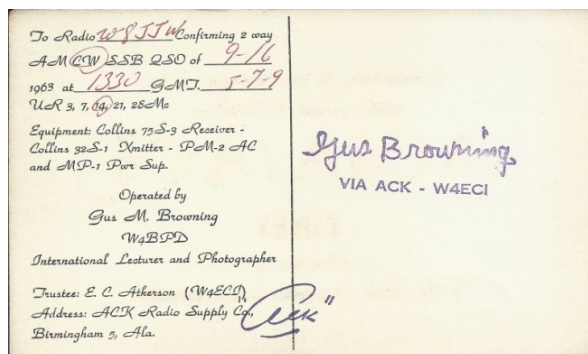 To Radio W8JJW Confirming 2 way
AM CW SSB QSO of 9-16
1963 at 1330 GMT. 5-7-9
UR 3, 7, 14, 21, 28Mc
Equipment: Collins 75S-3 Receiver -
Collins 32S-1 Xmitter - PM-2 AC
and MP-1 Pwr Sup.
Operated by
Gus M. Browning
W4BPD
International Lecturer and Photographer
Trustee: E. C. Atkerson (W4ECI)
Address: ACK Radio Supply Co.,
Birmingham 5, Ala.
"Ack"
Gus Browning
VIA ACK - W4ECI